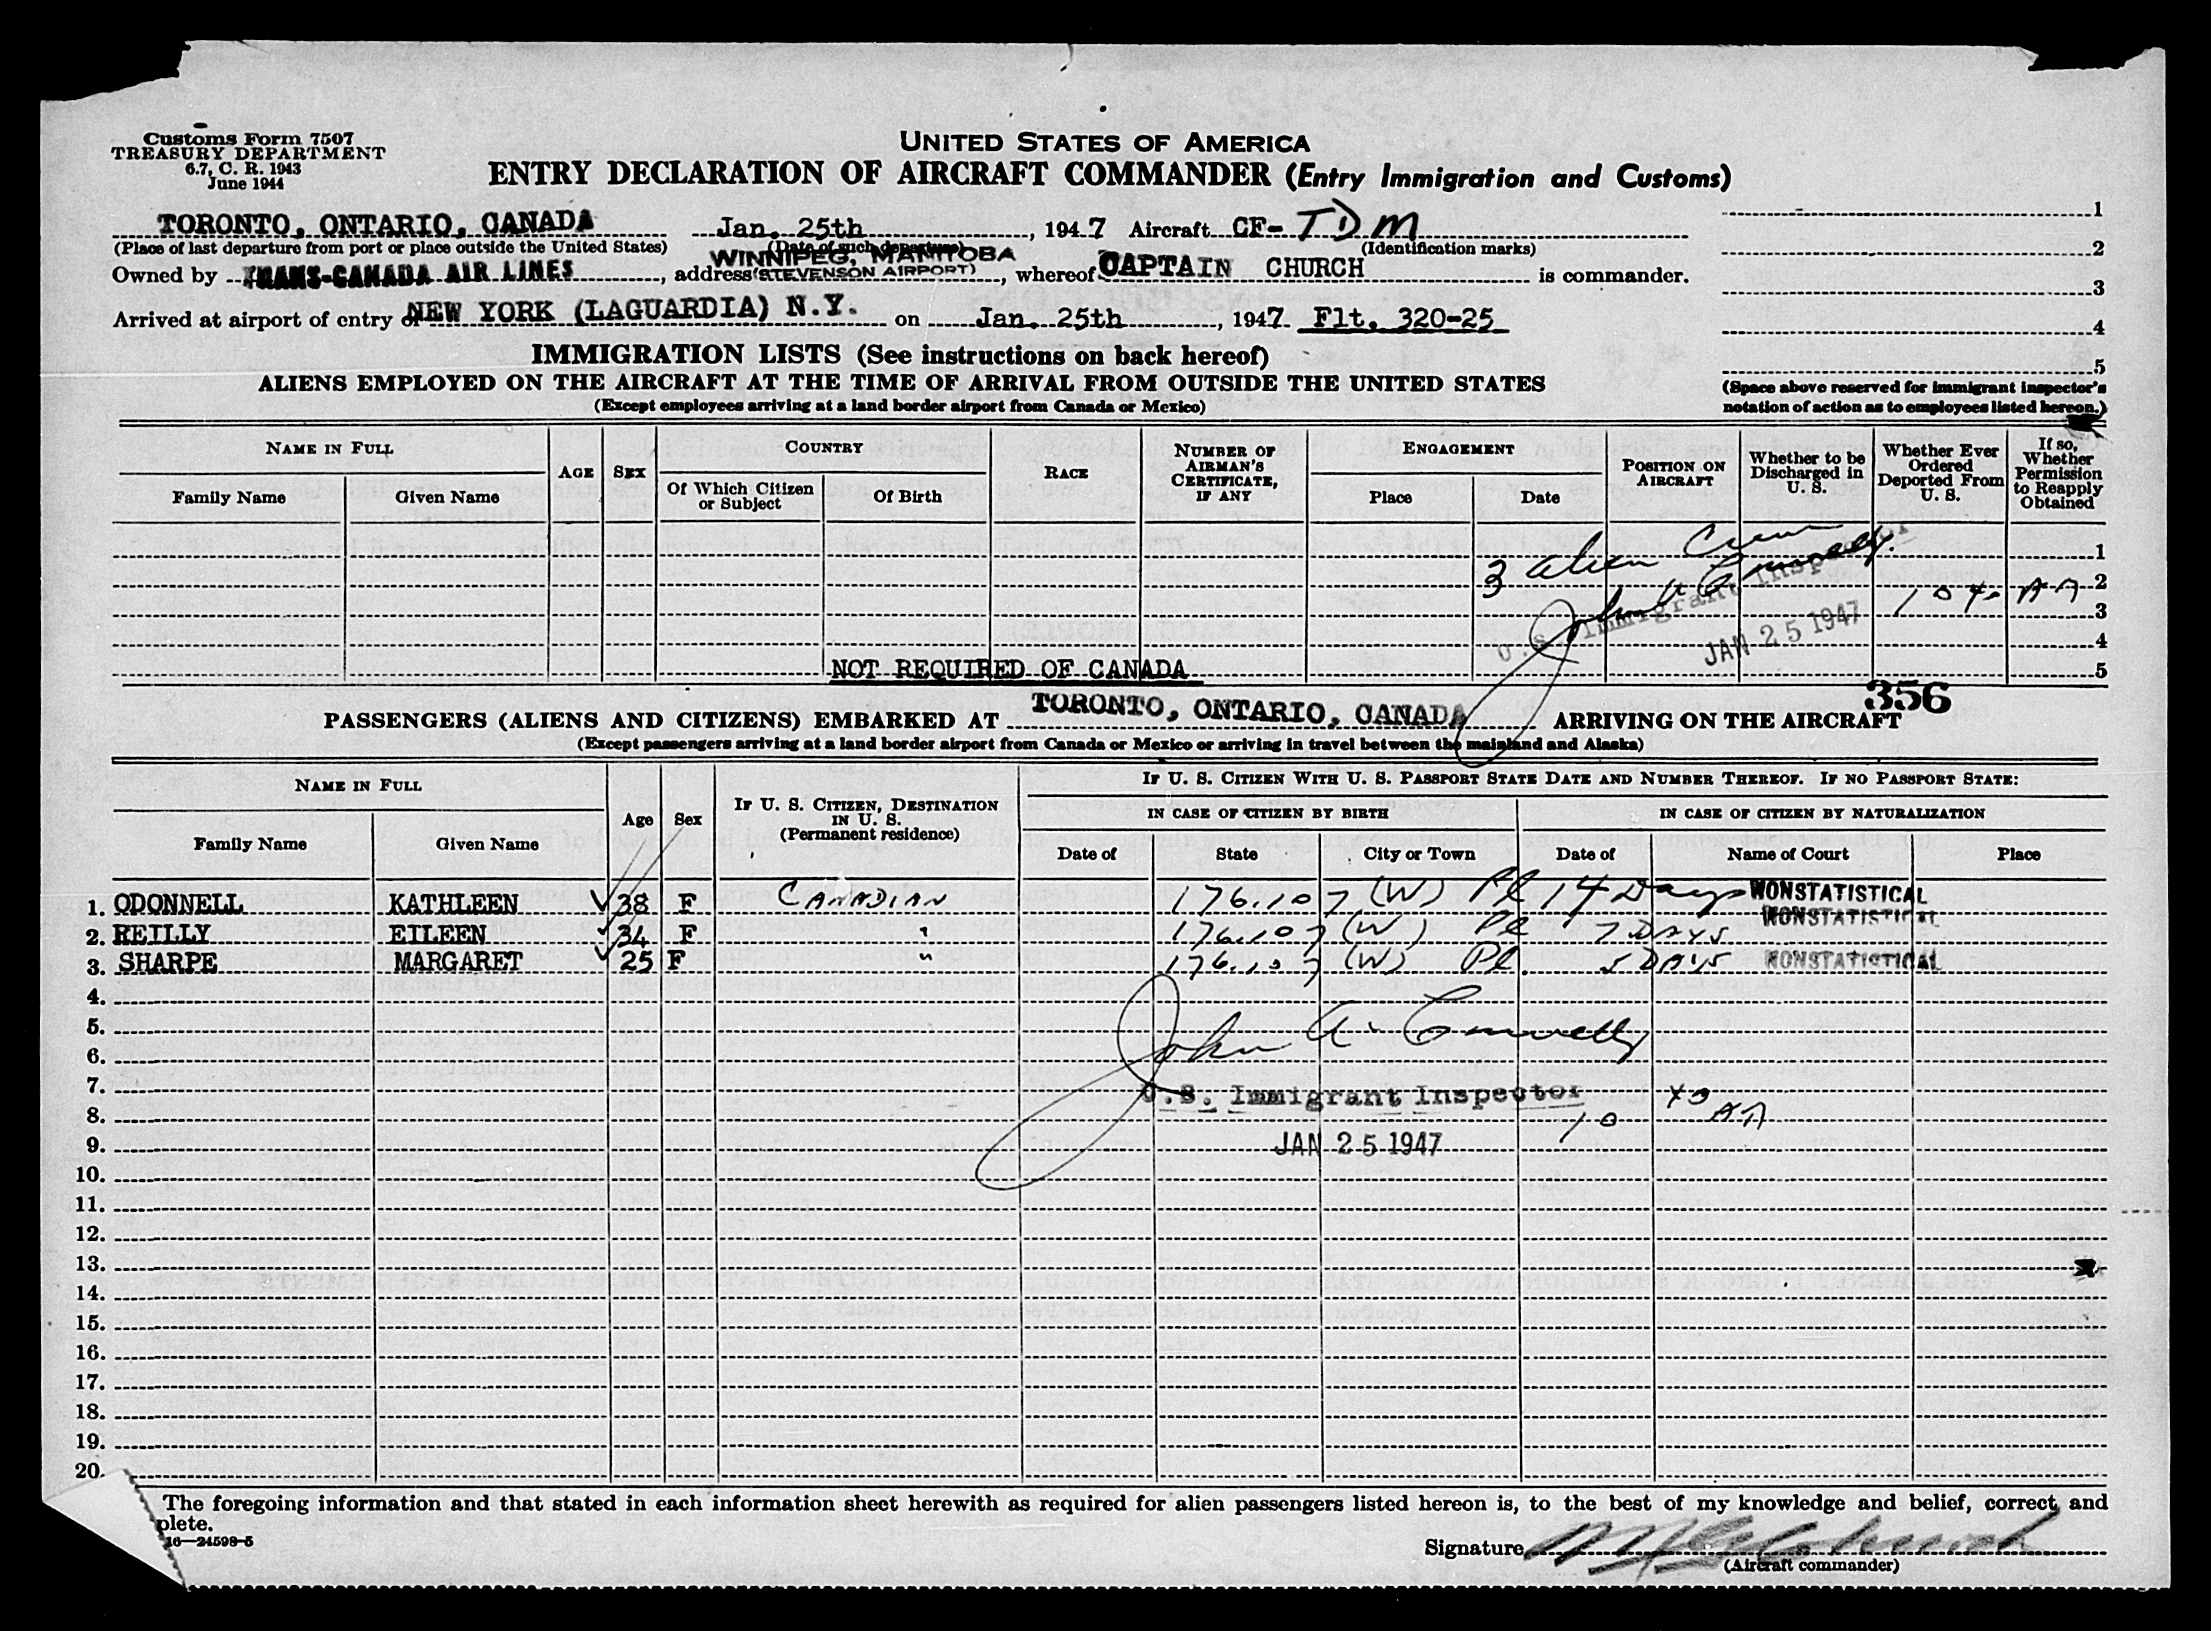 Customs Form 7507
TREASURY DEPARTMENT
6.7, C. R. 1943
June 1944
UNITED STATES OF AMERICA
ENTRY DECLARATION OF AIRCRAFT COMMANDER (Entry Immigration and Customs)
TORONTO, ONTARIO, CANADA Jan. 25th, 1947 Aircraft CF-TDM 1
(Place of last departure from port or place outside the United States) (Date of such departure) (Identification marks) 2
WINNIPEG, MANITOBA
Owned by TRANS-CANADA AIR LINES, address (STEVENSON AIRPORT), whereof CAPTAIN CHURCH is commander. 3
Arrived at airport of entry of NEW YORK (LAGUARDIA) N.Y. on Jan. 25th, 1947 Flt. 320-25 4
IMMIGRATION LISTS (See instructions on back hereof) 5
ALIENS EMPLOYED ON THE AIRCRAFT AT THE TIME OF ARRIVAL FROM OUTSIDE THE UNITED STATES
(Except employees arriving at a land border airport from Canada or Mexico)
(Space above reserved for immigrant inspector's
notation of action as to employees listed hereon.)
NAME IN FULL AGE SEX COUNTRY RACE NUMBER OF AIRMAN'S CERTIFICATE, IF ANY ENGAGEMENT POSITION ON AIRCRAFT Whether to be Discharged in U. S. Whether Ever Ordered Deported From U. S. If so, Whether Permission to Reapply Obtained
Family Name Given Name Of Which Citizen or Subject Of Birth Place Date
3 alien Crew 1
John A Connelly 2
U.S. Immigrant Inspector 10 40 AA 3
JAN 25 1947 4
NOT REQUIRED OF CANADA 5
356
PASSENGERS (ALIENS AND CITIZENS) EMBARKED AT TORONTO, ONTARIO, CANADA ARRIVING ON THE AIRCRAFT
(Except passengers arriving at a land border airport from Canada or Mexico or arriving in travel between the mainland and Alaska)
NAME IN FULL Age Sex IF U. S. CITIZEN, DESTINATION IN U. S. (Permanent residence) IF U. S. CITIZEN WITH U. S. PASSPORT STATE DATE AND NUMBER THEREOF. IF NO PASSPORT STATE:
IN CASE OF CITIZEN BY BIRTH IN CASE OF CITIZEN BY NATURALIZATION
Family Name Given Name Date of State City or Town Date of Name of Court Place
1. ODONNELL KATHLEEN 38 F CANADIAN 176.107 (W) Pl 14 Days NONSTATISTICAL
2. REILLY EILEEN 34 F " 176.107 (W) Pl 7 DAYS NONSTATISTICAL
3. SHARPE MARGARET 25 F " 176.107 (W) Pl. 5 DAYS NONSTATISTICAL
4.
5. John A. Connelly
6.
7. U.S. Immigrant Inspector 40
8. 10 AA
9. JAN 25 1947
10.
11.
12.
13.
14.
15.
16.
17.
18.
19.
20.
The foregoing information and that stated in each information sheet herewith as required for alien passengers listed hereon is, to the best of my knowledge and belief, correct, and
plete.
16—24598-5
Signature
(Aircraft commander)